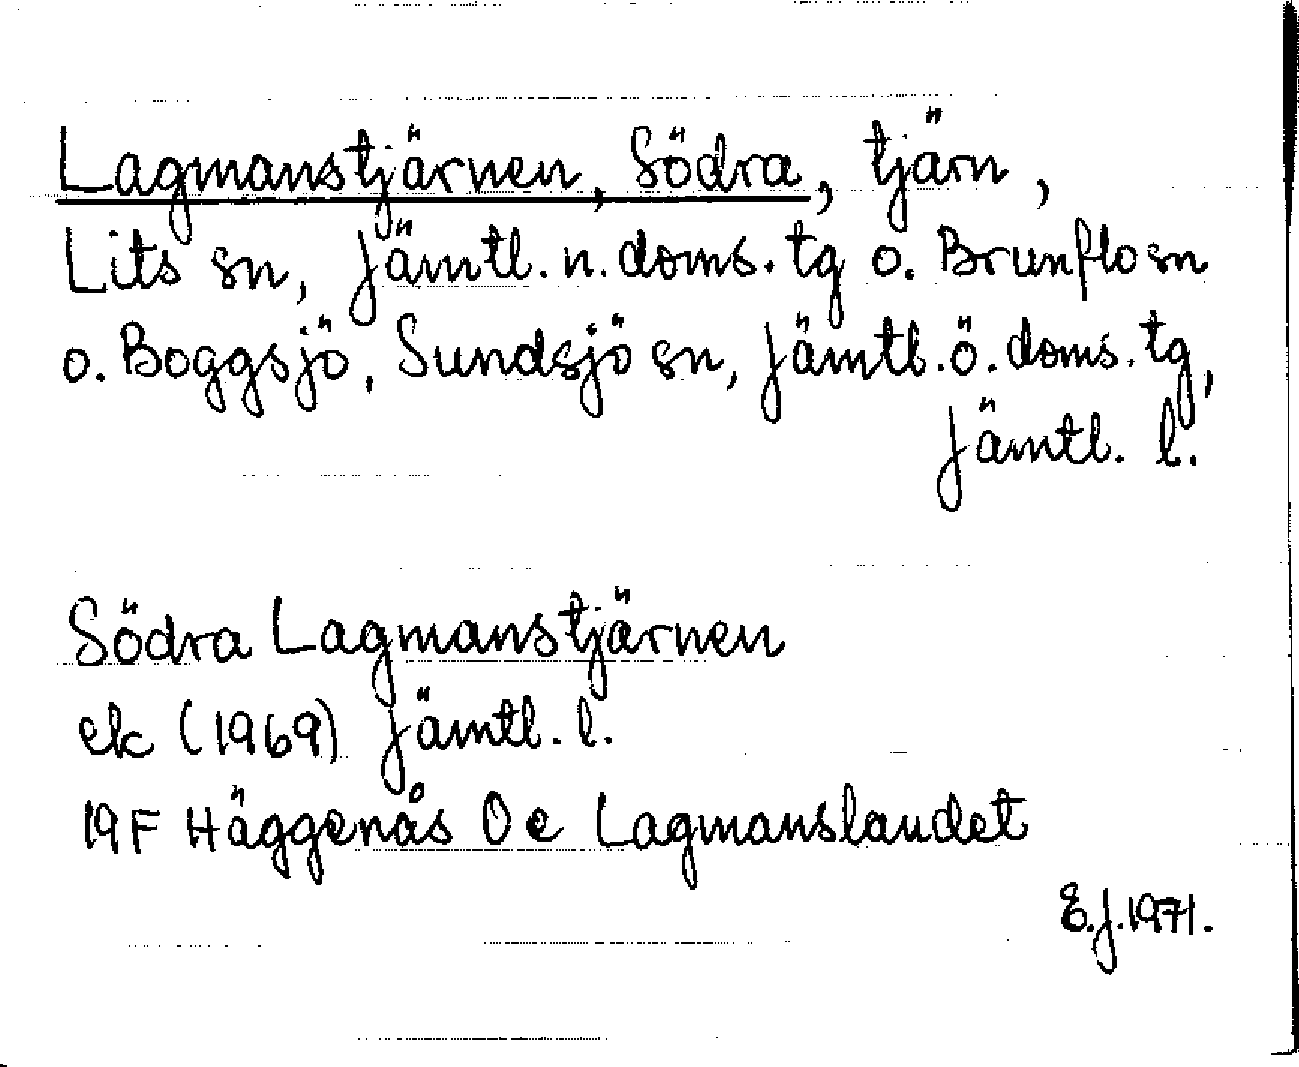 Lagmanstjärnen, Södra, tjärn,
Lits sn, Jämtl. n. doms. tg o. Brunflo sn
o. Boggsjö, Sundsjö sn, Jämtl. ö. doms. tg,
Jämtl. l.
Södra Lagmanstjärnen
ek (1969) Jämtl. l.
19F Häggenås 0e Lagmanslandet
E.J. 1971.